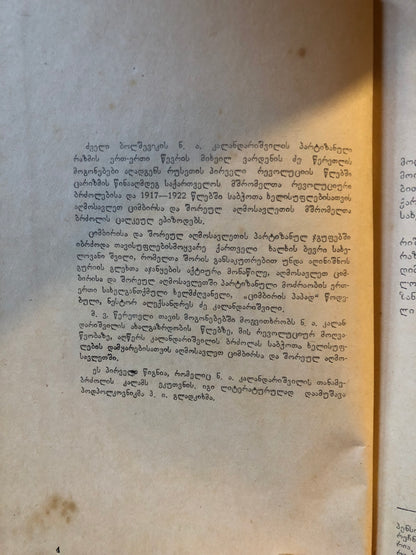 ძველი ბოლშევიკის ნ. ა. კალანდარიშვილის პარტიზანული
რაზმის ერთ-ერთი წევრის მიხეილ ვარდენის ძე წერეთლის
მოგონებები აღადგენს რუსეთის პირველი რევოლუციის წლებში
ცარიზმის წინააღმდეგ საქართველოს მშრომელთა რევოლუციური
ბრძოლებისა და 1917—1922 წლებში საბჭოთა ხელისუფლებისათვის
აღმოსავლეთ ციმბირსა და შორეულ აღმოსავლეთის მშრომელთა
ბრძოლის ცალკეულ ეპიზოდებს.
ციმბირისა და შორეულ აღმოსავლეთის პარტიზანულ ჯგუფებში
იბრძოდა თავისუფლებისმოყვარე ქართველი ხალხის ბევრი სახე-
ლოვანი შვილი, რომელთა შორის განსაკუთრებით უნდა აღინიშნოს
გურიის გლეხთა აჯანყების აქტიური მონაწილე, აღმოსავლეთ ციმ-
ბირისა და შორეულ აღმოსავლეთში პარტიზანული მოძრაობის ერთ-
ერთი სახელგანთქმული ხელმძღვანელი, „ციმბირის პაპად“ წოდე-
ბული, ნესტორ ალექსანდრეს ძე კალანდარიშვილი.
მ. ვ. წერეთელი თავის მოგონებებში მოგვითხრობს ნ. ა. კალან-
დარიშვილის ახალგაზრდობის წლებზე, მის რევოლუციურ მოღვა-
წეობაზე, აღწერს კალანდარიშვილის ბრძოლას საბჭოთა ხელისუფ-
ლების დამყარებისათვის აღმოსავლეთ ციმბირსა და შორეულ აღმო-
სავლეთში.
ეს პირველი წიგნია, რომელიც ნ. ა. კალანდარიშვილის თანამე-
ბრძოლის კალამს ეკუთვნის. იგი ლიტერატურულად დაამუშავა
პოდპოლკოვნიკმა პ. ი. გლადკიხმა.